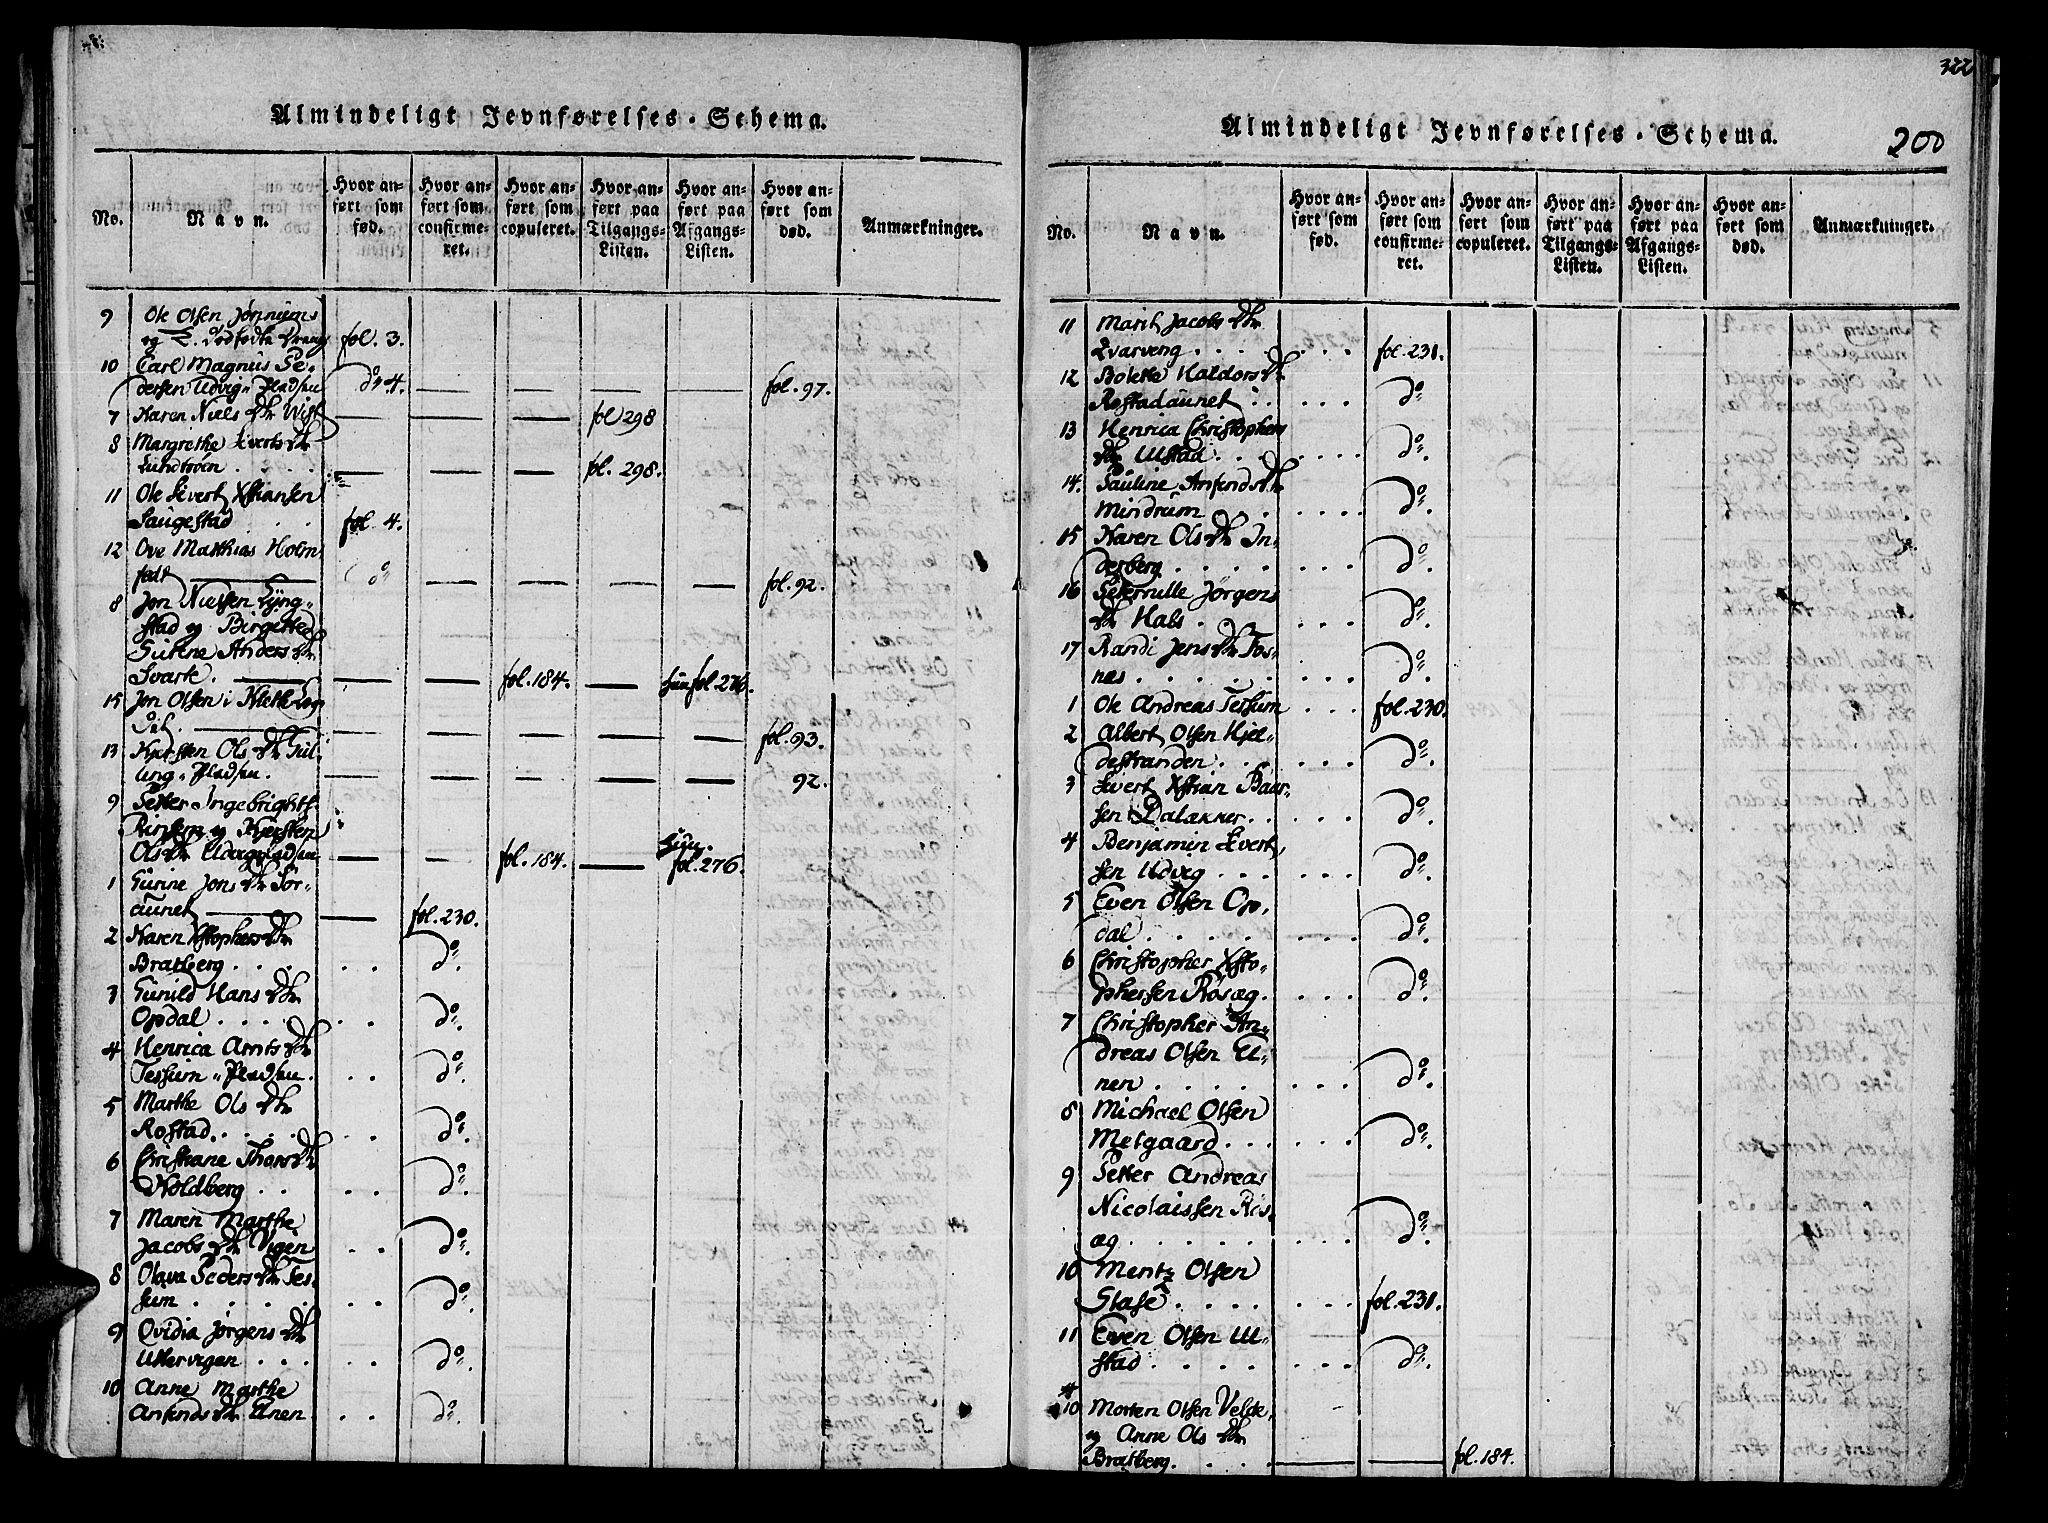 Almindeligt Jevnførelses-Schema.
No.
Navn.
Hvor an=
ført som
fød.
Hvor an=
ført som
confirme=
ret.
Hvor an=
ført som
copuleret.
Hvor an=
ført paa
Tilgangs=
Listen.
Hvor an=
ført paa
Afgangs=
Listen.
Hvor an=
ført som
død.
Anmærkninger.
9 Ole Olsen Jønnums
og E. dødfødte Dreng fol. 3.
10 Carl Magnus Pe-
dersen Udvig " Pladsen do 4. — — — — fol. 97.
7 Karen Niels Dtr Wist — — — fol 298
8 Margrethe Siverts Dtr
Lundsven . . . . — — — fol. 298.
11 Ole Sivert Xstiansen
Saugestad . . fol. 4.
12 Ove Mathias Holm
født — do — — — — fol. 92.
8 Jon Nielsen Lyng-
stad og Birgitte
Gurine Anders Dtr
Svarte. — — — fol. 184. — hun fol 276.
15 Jon Olsen i Klethe Log
Sil. — — — — — — fol. 93.
13 Kjersten Ols Dtr Gul-
ling " Pladsen. — — — — — 92.
9 Petter Ingebrights.
og Kjersten
Ols Dtr Udvigpladsen — — fol. 184. — hun.
fol. 276.
1 Gurine Jons Dtr Sør-
aunet — — fol. 230.
2 Karen Xstophers Dtr
Bratberg . . . . . . do.
3 Gunild Hans Dtr
Opdal . . . . . . do.
4 Henrica Arnts Dtr
Tessum " Pladsen. . . do.
5 Marthe Ols Dtr
Rostad. . . . . . . do.
6 Christiane Thors Dtr
Holdberg . . . . do.
7 Maren Marthe
Jacobs Dtr Vigen . . do.
8 Olava Peders Dtr Tes-
sum . . . . . . do.
9 Ovidia Jørgens Dtr
Uttervigen . . . . . do.
10 Anne Marthe
Arnfinds Dtr Einen. . . do.
322
200
Almindeligt Jevnførelses-Schema.
No.
Navn.
Hvor an=
ført som
fød.
Hvor an=
ført som
confirme=
ret.
Hvor an=
ført som
copuleret.
Hvor an=
ført paa
Tilgangs=
Listen.
Hvor an=
ført paa
Afgangs=
Listen.
Hvor an=
ført som
død.
Anmærkninger.
11 Marit Jacobs Dtr
Qvarveng . . . . . . . fol. 231.
12 Bolette Haldors Dtr
Rostadaunet . . . . . do
13 Henrica Christophers
Dtr Ulstad . . . . . . . do.
14. Pauline Arnfinds Dtr
Mindrum . . . . . . do.
15 Karen Ols Dtr In-
derberg . . . . . . . do.
16 Petternille Jørgens
Dtr Hals . . . . . do.
17 Randi Jens Dtr Fos-
næs . . . . . . . do.
1 Ole Andreas Tessum . . . fol. 230.
2 Albert Olsen Hjel-
destranden . . . . . . do.
3 Sivert Xstian Baar-
sen Dalækner. . . . . . do.
4 Benjamin Sivert-
sen Udvig . . . . . . do.
5 Even Olsen Op-
dal . . . . . . . do.
6 Christopher Xsto-
phersen Røsæg. . . . . do.
7 Christopher An-
dreas Olsen Ei-
nen . . . . . . . do.
8 Michael Olsen
Melgaard . . . . . . do.
9 Petter Andreas
Nicolaissen Røs-
æg . . . . . . . do.
10 Mentz Olsen
Stafe . . . . . . . fol. 231.
11 Even Olsen Ul-
stad . . . . . . . do.
10 Morten Olsen Velde.
og Anne Ols Dtr
Bratberg. . . . — — fol. 184.